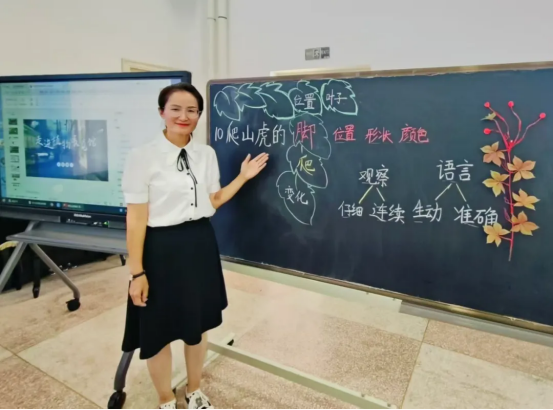 位置 叶子
10 爬山虎的脚 位置 形状 颜色
爬
变化
观察 语言
仔细 连续 生动 准确